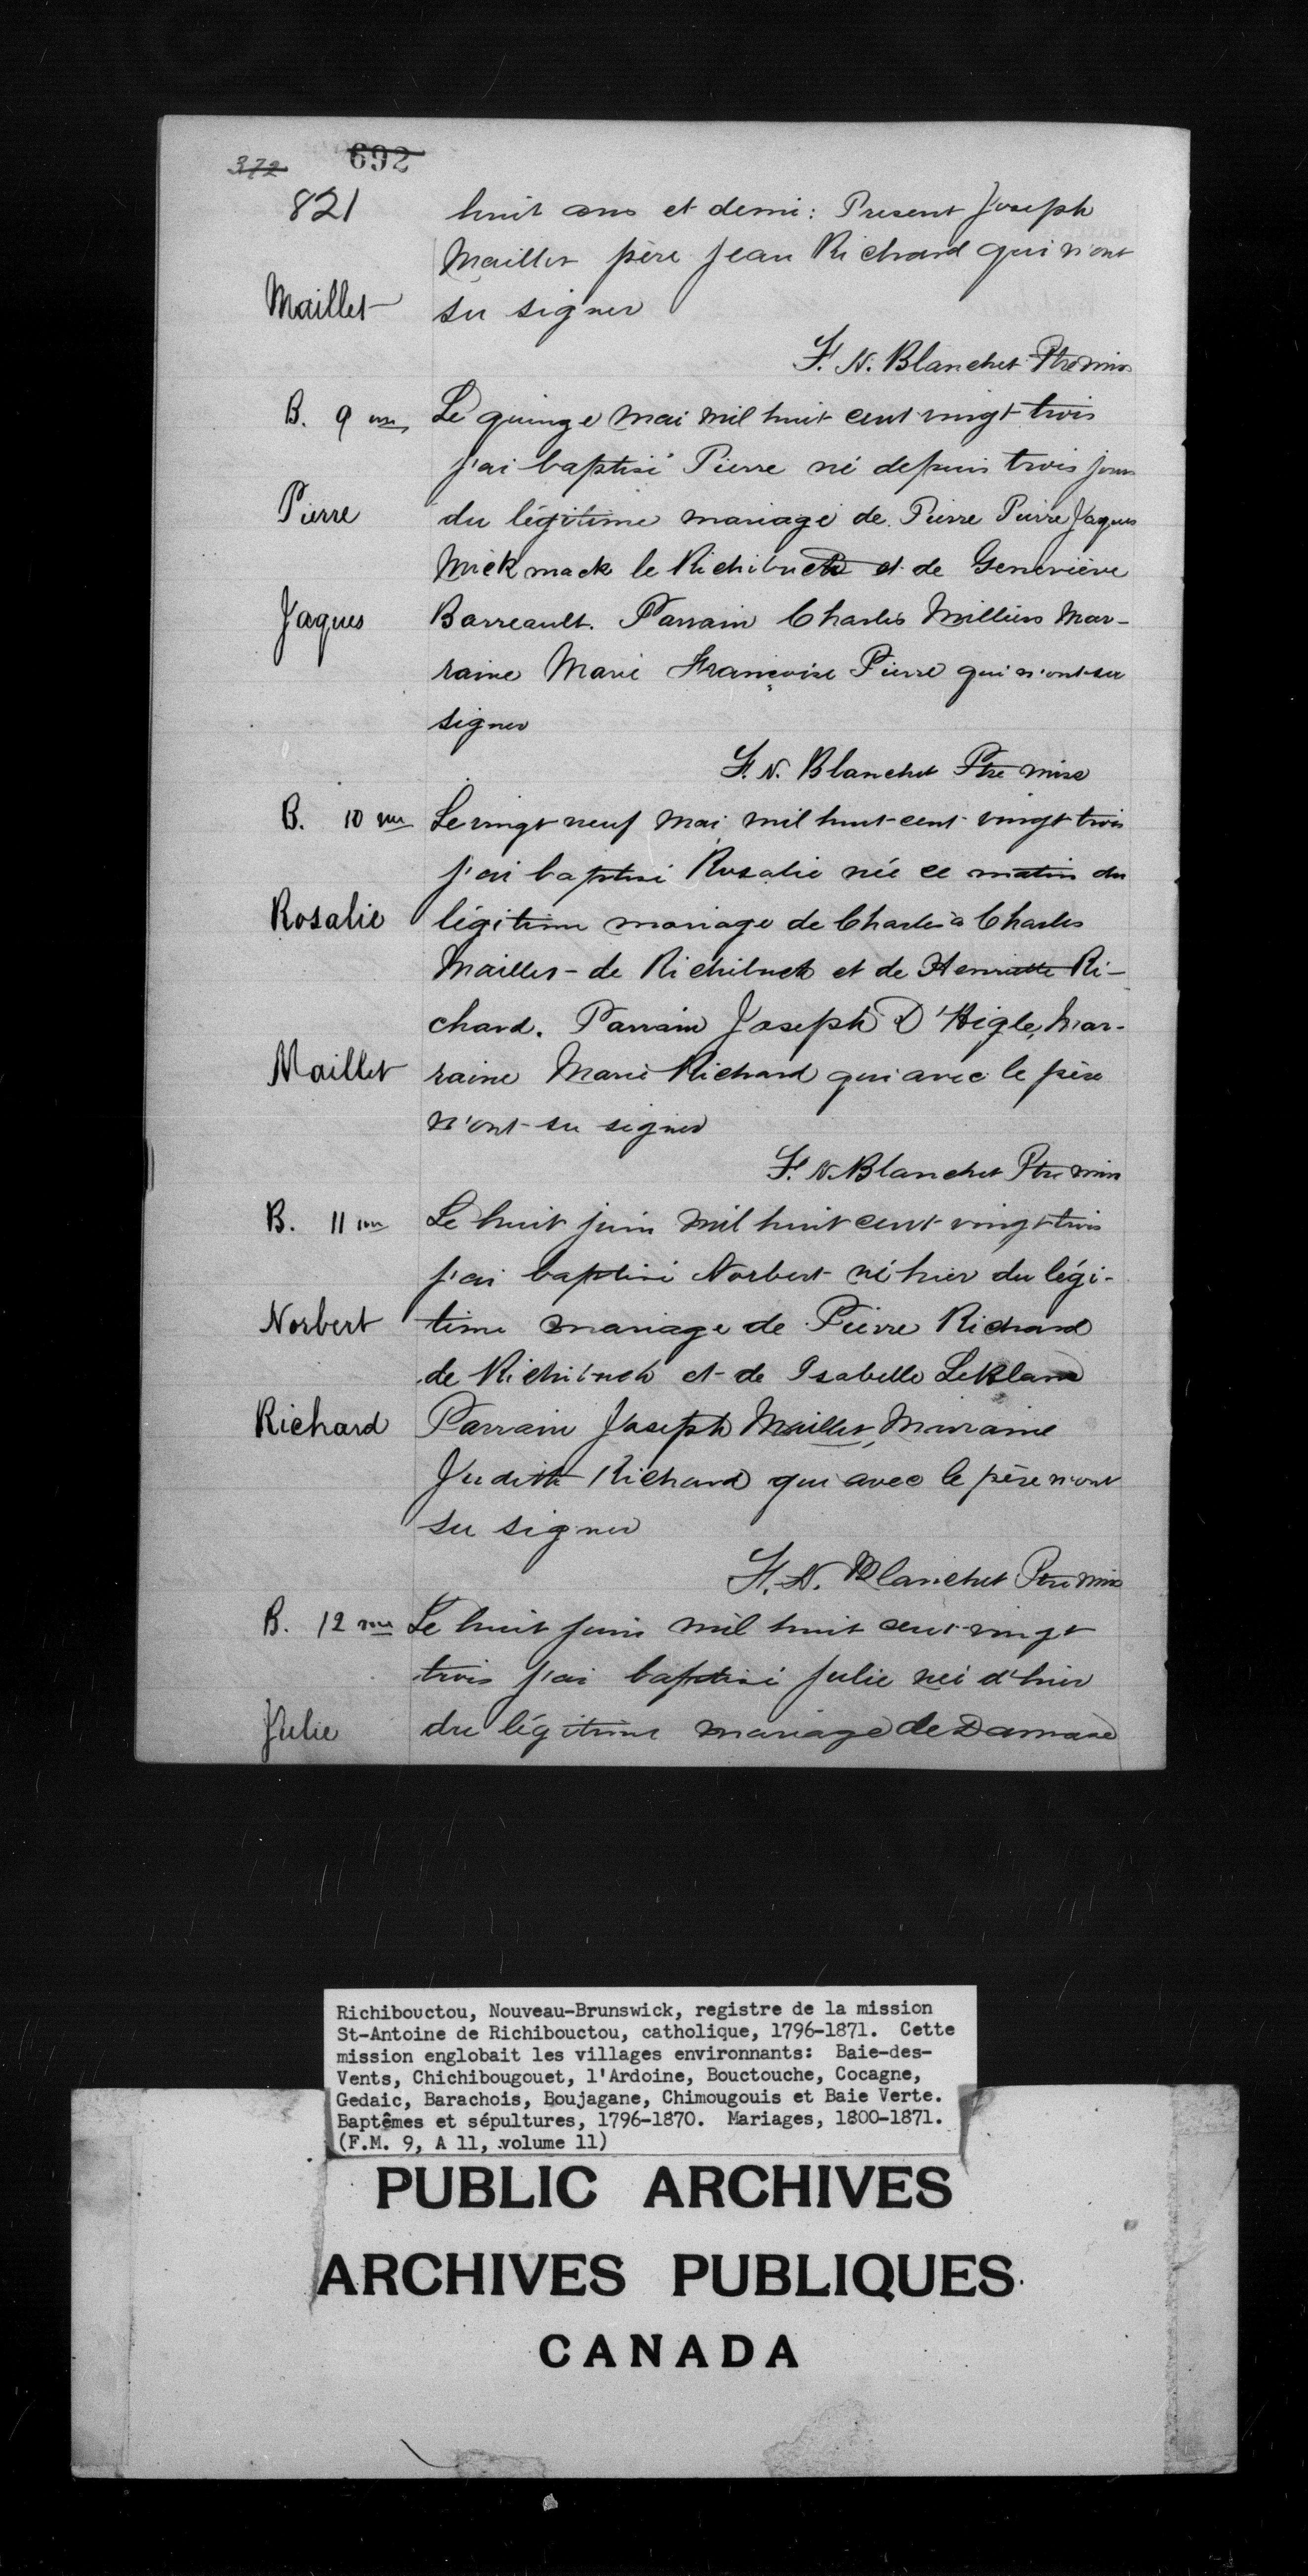 372 692
821 huit ans et demi: Present Joseph
Maillet père Jean Richard qui n'ont
Maillet su signer
F. N. Blanchet Ptre miss
B. 9 me Le quinze mai mil huit cent vingt trois
j'ai baptisé Pierre né depuis trois jours
Pierre du légitime mariage de Pierre Pierre Jaques
Mickmack le Richibuctr et de Geneviève
Jaques Barreault. Parrain Charles Milliers Mar-
raine Marie Françoise Pierre qui n'ont su
signer
F. N. Blanchet Ptre miss
B. 10 me Le vingt neuf mai mil huit cent vingt trois
j'ai baptisé Rosalie née ce matin du
Rosalie légitime mariage de Charles à Charles
Maillet de Richibuct et de Henriette Ri-
chard. Parrain Joseph D'Aigle, Mar-
Maillet raine Marie Richard qui avec le père
n'ont su signer
F. N. Blanchet Ptre miss
B. 11 me Le huit juin mil huit cent vingt trois
j'ai baptisé Norbert né hier du légi-
Norbert time mariage de Pierre Richard
de Richibuct et de Isabelle LeBlanc
Richard Parrain Joseph Maillet, Marraine
Judith Richard qui avec le père n'ont
su signer
F. N. Blanchet Ptre miss
B. 12 me Le huit juin mil huit cent vingt
trois j'ai baptisé Julie née d'hier
Julie du légitime mariage de Damase
Richibouctou, Nouveau-Brunswick, registre de la mission
St-Antoine de Richibouctou, catholique, 1796-1871. Cette
mission englobait les villages environnants: Baie-des-
Vents, Chichibougouet, l'Ardoine, Bouctouche, Cocagne,
Gedaic, Barachois, Boujagane, Chimougouis et Baie Verte.
Baptêmes et sépultures, 1796-1870. Mariages, 1800-1871.
(F.M. 9, A 11, volume 11)
PUBLIC ARCHIVES
ARCHIVES PUBLIQUES
CANADA